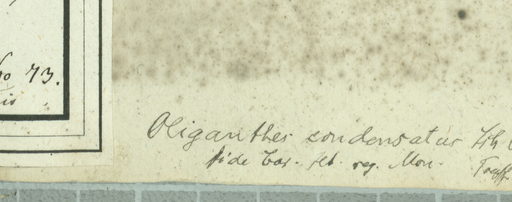 No 73.
is
Oliganthes condensatus Sch
fide Cas. Hb. reg. Mon.